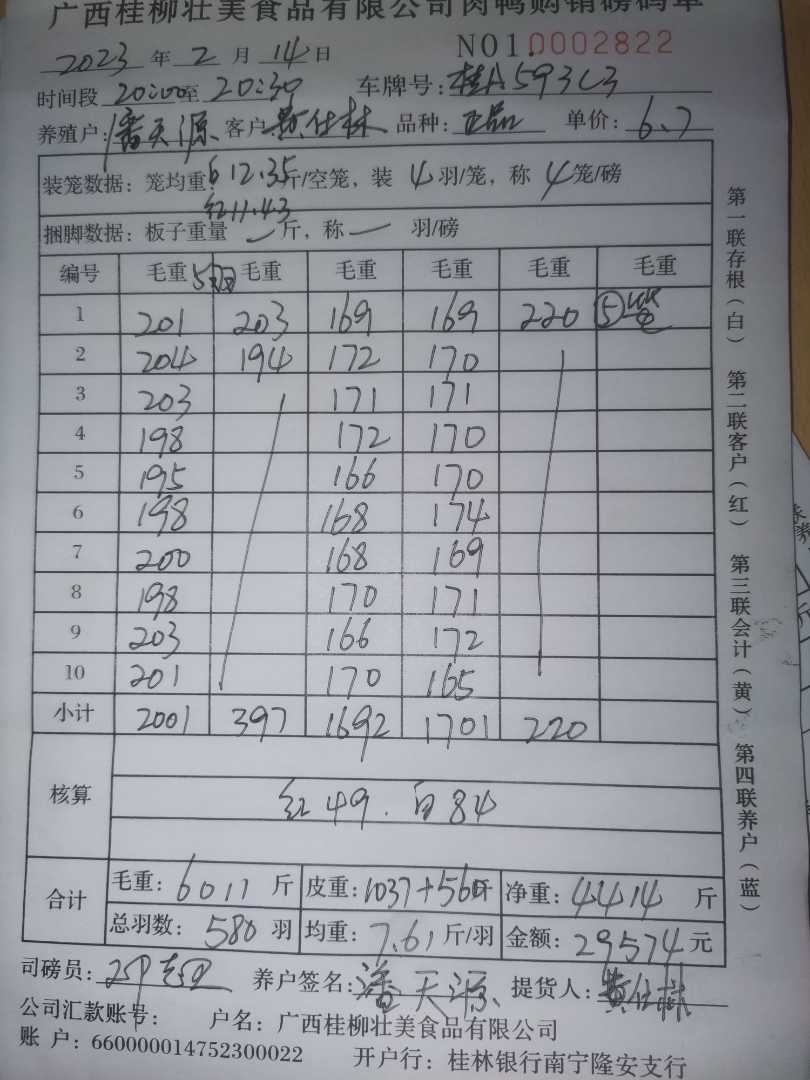 广西桂柳壮美食品有限公司肉鸭购销磅码单
2023 年 2 月 14 日 NO10002822
时间段 20:00至 20:30 车牌号:桂A593C3
养殖户:潘天源 客户 黄仕林 品种:正品 单价:6.7
装笼数据:笼均重 白12.35斤/空笼,装 4 羽/笼,称 4 笼/磅
红11.43
捆脚数据:板子重量 一 斤,称 一 羽/磅
编号 毛重 5羽 毛重 毛重 毛重 毛重 毛重
1 201 203 169 169 220 ⑤笼
2 204 194 172 170
3 203 171 171
4 198 172 170
5 195 166 170
6 198 168 174
7 200 168 169
8 198 170 171
9 203 166 172
10 201 170 165
小计 2001 397 1692 1701 220
核算 红49.白84
合计 毛重:6011 斤 皮重:1037+560斤 净重:4414 斤
总羽数:580 羽 均重:7.61 斤/羽 金额:29574 元
司磅员: 养户签名:潘天源 提货人:黄仕林
公司汇款账号: 户名:广西桂柳壮美食品有限公司
账 户:660000014752300022 开户行:桂林银行南宁隆安支行
第一联存根(白) 第二联客户(红) 第三联会计(黄) 第四联养户(蓝)